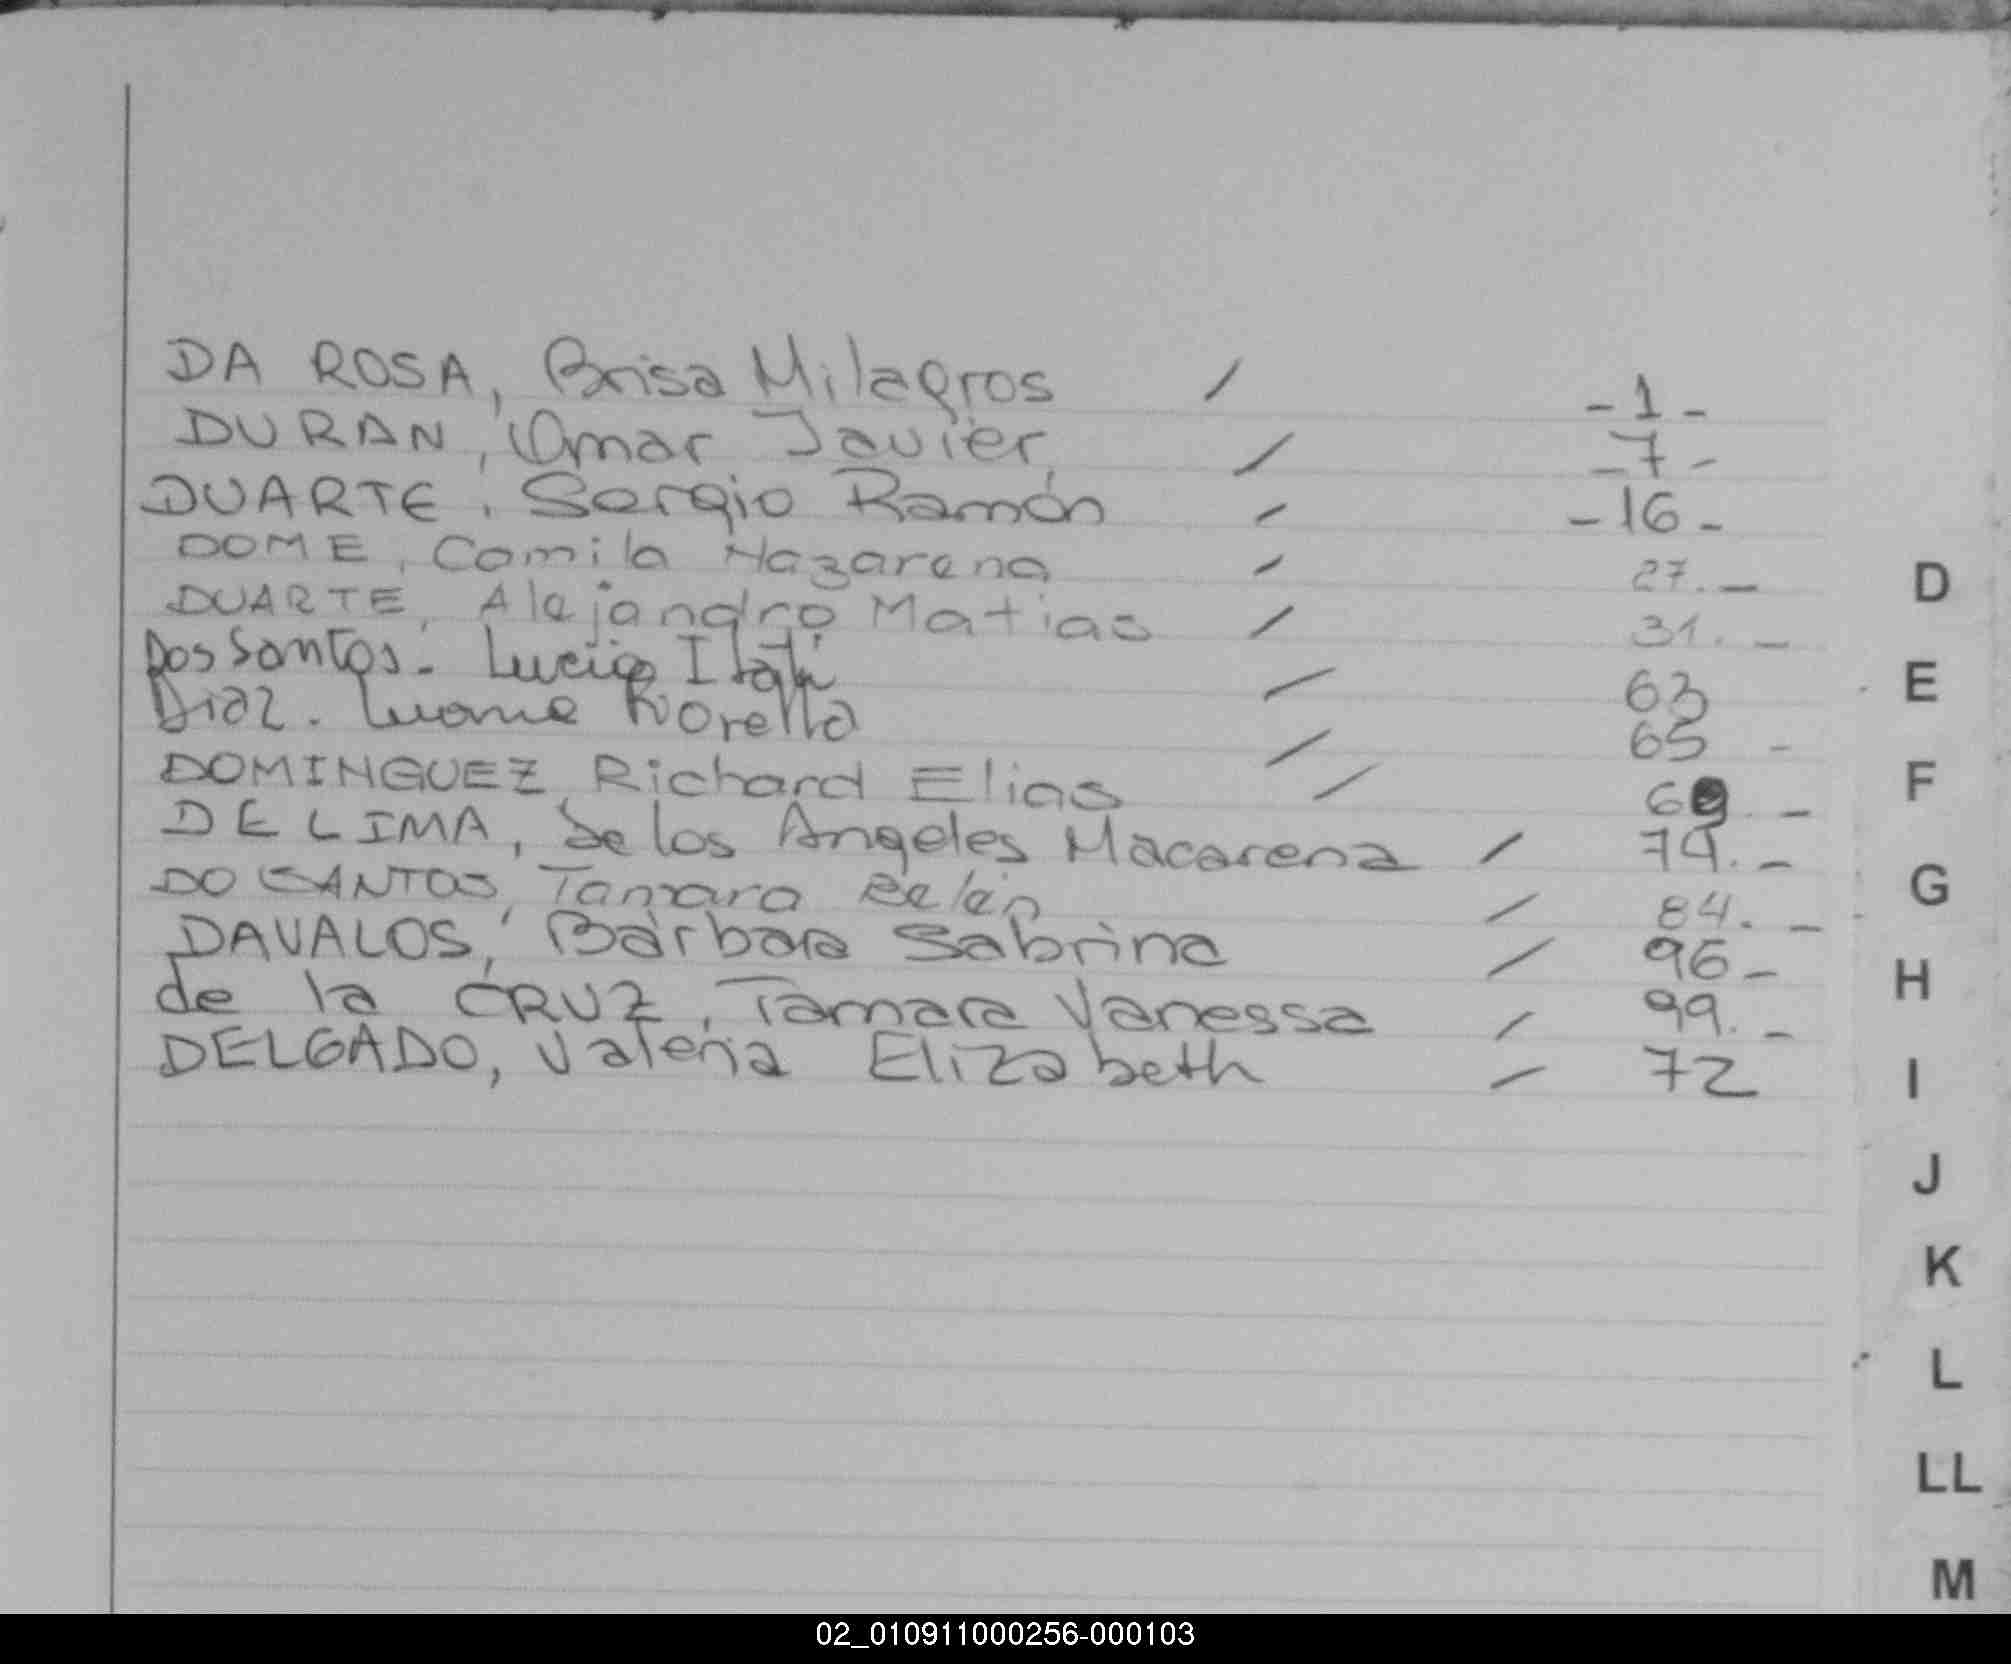 DA ROSA, Brisa Milagros / -1-
DURAN, Omar Javier, / -7-
DUARTE, Sergio Ramón / -16-
DOME, Camila Nazarena / 27.-
DUARTE, Alejandro Matias / 31.-
Dos Santos. Lucia Itatí / 63
Diaz. Fiorella / 65 -
DOMINGUEZ, Richard Elias / 69 -
DE LIMA, de los Angeles Macarena / 74.-
DO SANTOS, Tamara Belén / 84.-
DAVALOS, Bárbara Sabrina / 96-
de la CRUZ, Tamara Vanessa / 99.-
DELGADO, Valeria Elizabeth / 72
D
E
F
G
H
I
J
K
L
LL
M
02_010911000256-000103